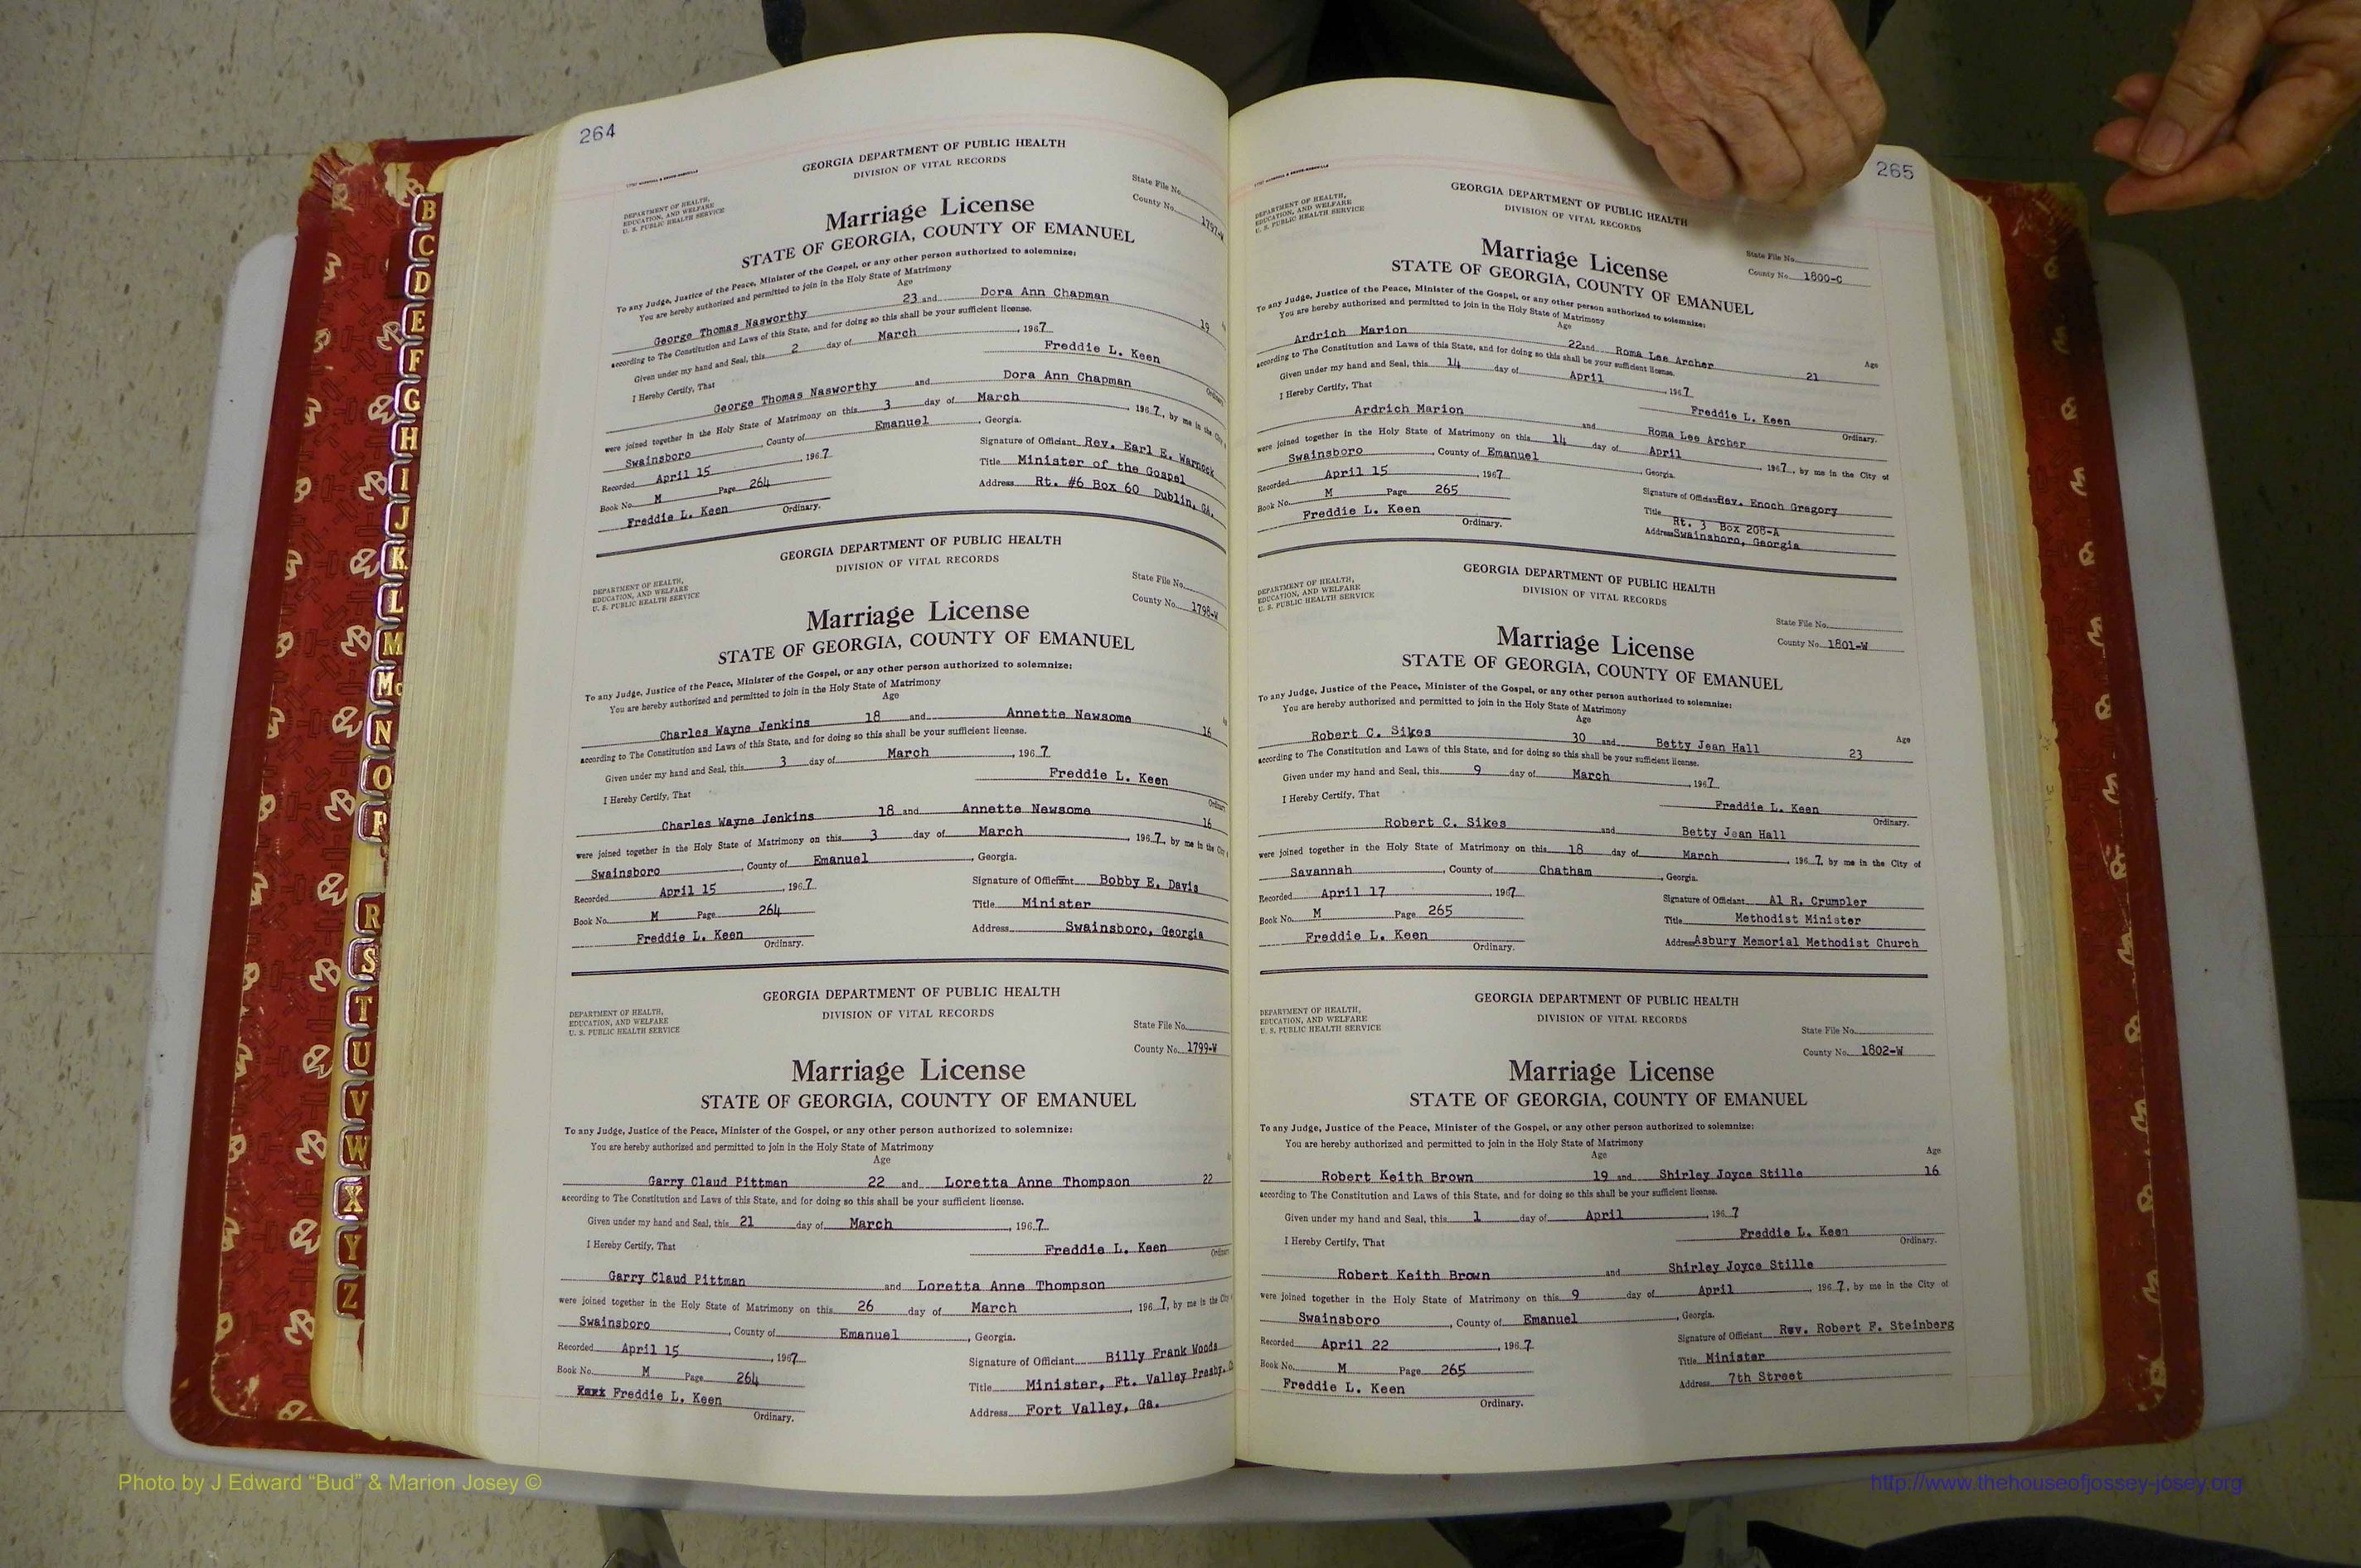 B
C
D
E
F
G
H
I
J
K
L
M
Mc
N
O
P
R
S
T
U
V
W
X
Y
Z
264
GEORGIA DEPARTMENT OF PUBLIC HEALTH
DIVISION OF VITAL RECORDS
DEPARTMENT OF HEALTH,
EDUCATION, AND WELFARE
U. S. PUBLIC HEALTH SERVICE
State File No.
County No. 1797-W
Marriage License
STATE OF GEORGIA, COUNTY OF EMANUEL
To any Judge, Justice of the Peace, Minister of the Gospel, or any other person authorized to solemnize:
You are hereby authorized and permitted to join in the Holy State of Matrimony
Age
George Thomas Nasworthy 23 and Dora Ann Chapman 19
according to The Constitution and Laws of this State, and for doing so this shall be your sufficient license.
Given under my hand and Seal, this 2 day of March, 1967
Freddie L. Keen
I Hereby Certify, That Ordinary
George Thomas Nasworthy and Dora Ann Chapman
were joined together in the Holy State of Matrimony on this 3 day of March, 1967, by me in the City
Swainsboro, County of Emanuel, Georgia.
Recorded April 15, 1967
Signature of Officiant Rev. Earl E. Warnock
Book No. M Page 264
Title Minister of the Gospel
Freddie L. Keen
Ordinary.
Address Rt. #6 Box 60 Dublin, GA.
GEORGIA DEPARTMENT OF PUBLIC HEALTH
DIVISION OF VITAL RECORDS
DEPARTMENT OF HEALTH,
EDUCATION, AND WELFARE
U. S. PUBLIC HEALTH SERVICE
State File No.
County No. 1798-W
Marriage License
STATE OF GEORGIA, COUNTY OF EMANUEL
To any Judge, Justice of the Peace, Minister of the Gospel, or any other person authorized to solemnize:
You are hereby authorized and permitted to join in the Holy State of Matrimony
Age
Charles Wayne Jenkins 18 and Annette Newsome 16
according to The Constitution and Laws of this State, and for doing so this shall be your sufficient license.
Given under my hand and Seal, this 3 day of March, 1967
Freddie L. Keen
I Hereby Certify, That Ordinary
Charles Wayne Jenkins 18 and Annette Newsome 16
were joined together in the Holy State of Matrimony on this 3 day of March, 1967, by me in the City
Swainsboro, County of Emanuel, Georgia.
Recorded April 15, 1967
Signature of Officiant Bobby E. Davis
Book No. M Page 264
Title Minister
Freddie L. Keen
Ordinary.
Address Swainsboro, Georgia
GEORGIA DEPARTMENT OF PUBLIC HEALTH
DIVISION OF VITAL RECORDS
DEPARTMENT OF HEALTH,
EDUCATION, AND WELFARE
U. S. PUBLIC HEALTH SERVICE
State File No.
County No. 1799-W
Marriage License
STATE OF GEORGIA, COUNTY OF EMANUEL
To any Judge, Justice of the Peace, Minister of the Gospel, or any other person authorized to solemnize:
You are hereby authorized and permitted to join in the Holy State of Matrimony
Age
Garry Claud Pittman 22 and Loretta Anne Thompson 22
according to The Constitution and Laws of this State, and for doing so this shall be your sufficient license.
Given under my hand and Seal, this 21 day of March, 1967
Freddie L. Keen
I Hereby Certify, That Ordinary
Garry Claud Pittman and Loretta Anne Thompson
were joined together in the Holy State of Matrimony on this 26 day of March, 1967, by me in the City
Swainsboro, County of Emanuel, Georgia.
Recorded April 15, 1967
Signature of Officiant Billy Frank Woods
Book No. M Page 264
Title Minister, Ft. Valley Presby.
Freddie L. Keen
Ordinary.
Address Fort Valley, Ga.
265
GEORGIA DEPARTMENT OF PUBLIC HEALTH
DIVISION OF VITAL RECORDS
DEPARTMENT OF HEALTH,
EDUCATION, AND WELFARE
U. S. PUBLIC HEALTH SERVICE
State File No.
County No. 1800-C
Marriage License
STATE OF GEORGIA, COUNTY OF EMANUEL
To any Judge, Justice of the Peace, Minister of the Gospel, or any other person authorized to solemnize:
You are hereby authorized and permitted to join in the Holy State of Matrimony
Age Age
Ardrich Marion 22 and Roma Lee Archer 21
according to The Constitution and Laws of this State, and for doing so this shall be your sufficient license.
Given under my hand and Seal, this 14 day of April, 1967
Freddie L. Keen
I Hereby Certify, That Ordinary.
Ardrich Marion and Roma Lee Archer
were joined together in the Holy State of Matrimony on this 14 day of April, 1967, by me in the City of
Swainsboro, County of Emanuel, Georgia.
Recorded April 15, 1967
Signature of Officiant Rev. Enoch Gregory
Book No. M Page 265
Title
Rt. 3 Box 208-A
Freddie L. Keen
Ordinary.
Address Swainsboro, Georgia
GEORGIA DEPARTMENT OF PUBLIC HEALTH
DIVISION OF VITAL RECORDS
DEPARTMENT OF HEALTH,
EDUCATION, AND WELFARE
U. S. PUBLIC HEALTH SERVICE
State File No.
County No. 1801-W
Marriage License
STATE OF GEORGIA, COUNTY OF EMANUEL
To any Judge, Justice of the Peace, Minister of the Gospel, or any other person authorized to solemnize:
You are hereby authorized and permitted to join in the Holy State of Matrimony
Age Age
Robert C. Sikes 30 and Betty Jean Hall 23
according to The Constitution and Laws of this State, and for doing so this shall be your sufficient license.
Given under my hand and Seal, this 9 day of March, 1967
Freddie L. Keen
I Hereby Certify, That Ordinary.
Robert C. Sikes and Betty Jean Hall
were joined together in the Holy State of Matrimony on this 18 day of March, 1967, by me in the City of
Savannah, County of Chatham, Georgia.
Recorded April 17, 1967
Signature of Officiant Al R. Crumpler
Book No. M Page 265
Title Methodist Minister
Freddie L. Keen
Ordinary.
Address Asbury Memorial Methodist Church
GEORGIA DEPARTMENT OF PUBLIC HEALTH
DIVISION OF VITAL RECORDS
DEPARTMENT OF HEALTH,
EDUCATION, AND WELFARE
U. S. PUBLIC HEALTH SERVICE
State File No.
County No. 1802-W
Marriage License
STATE OF GEORGIA, COUNTY OF EMANUEL
To any Judge, Justice of the Peace, Minister of the Gospel, or any other person authorized to solemnize:
You are hereby authorized and permitted to join in the Holy State of Matrimony
Age Age
Robert Keith Brown 19 and Shirley Joyce Stille 16
according to The Constitution and Laws of this State, and for doing so this shall be your sufficient license.
Given under my hand and Seal, this 1 day of April, 1967
Freddie L. Keen
I Hereby Certify, That Ordinary.
Robert Keith Brown and Shirley Joyce Stille
were joined together in the Holy State of Matrimony on this 9 day of April, 1967, by me in the City of
Swainsboro, County of Emanuel, Georgia.
Recorded April 22, 1967
Signature of Officiant Rev. Robert F. Steinberg
Book No. M Page 265
Title Minister
Freddie L. Keen
Ordinary.
Address 7th Street
Photo by J Edward “Bud” & Marion Josey ©
http://www.thehouseofjossey-josey.org